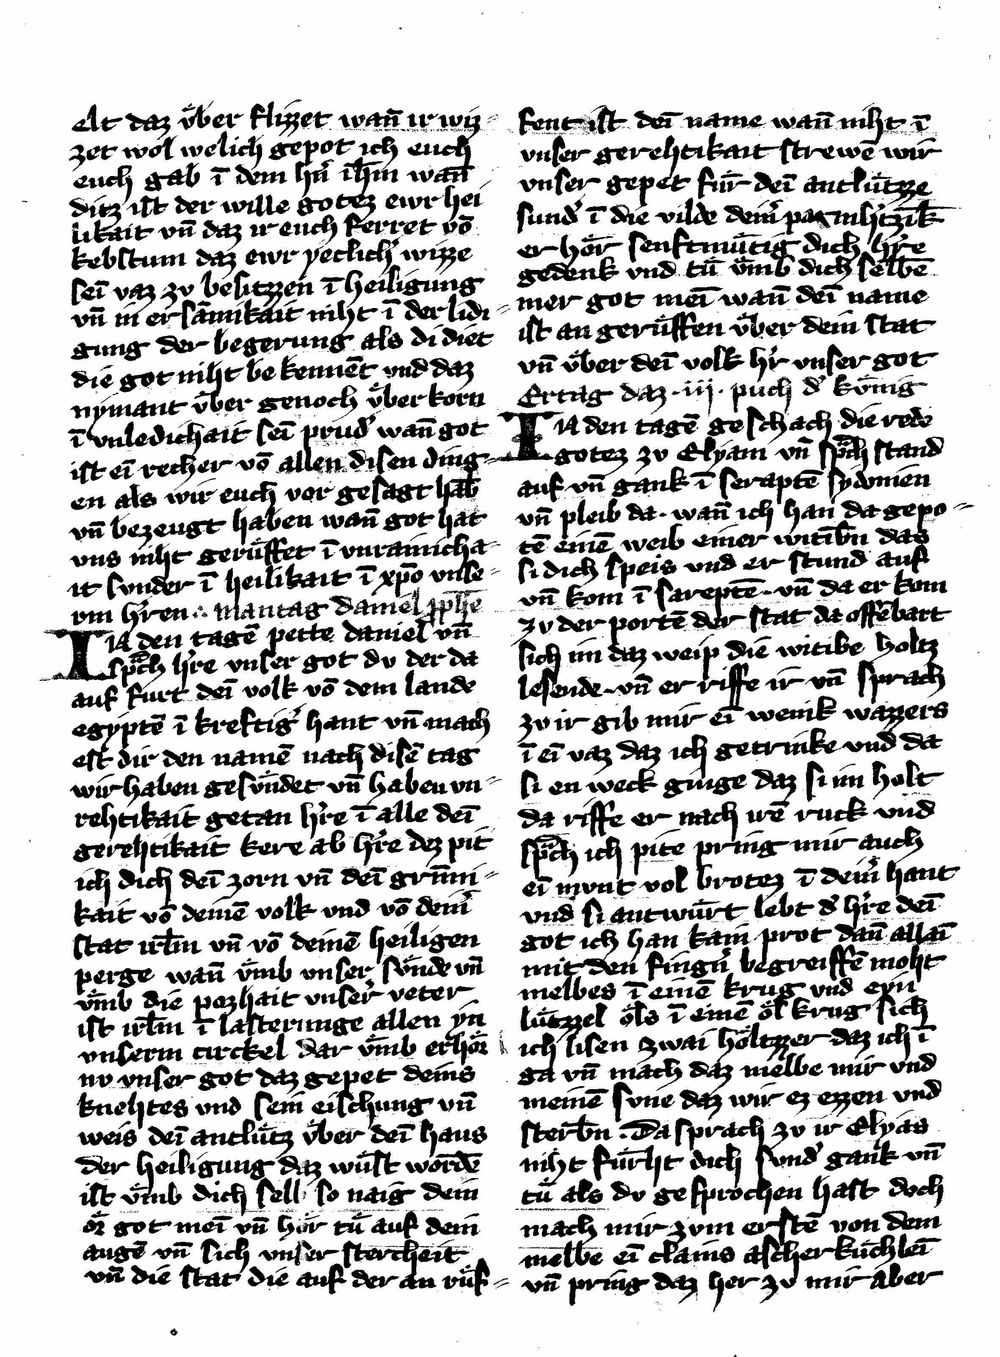 elt daz v̊ber flizzet wan̄ ir wiz-
zet wol welich gepot ich euch
euch gab ī dem hn̄ ih̄m wan̄
ditz ist der wille gotez ewr hei
likait vn̄ daz ir euch ferret vō
kebstum daz ewr yeclich' wizze
seī vaz zv besitzzen ī heiligung
vn̄ in ersāmikait niht ī der lidi-
gung der begerung als di diet
die got niht bekennēt vnd daz
nymant v̊ber genoch v̊berkorn
ī vnledichait seī prud' wan̄ got
ist eī recher vō allen disen ding-
en als wir euch vor gesagt hab̄
vn̄ bezeugt haben wan̄ got hat
vns niht gerůffet ī vnrainicha-
it svnder ī heilikait ī xp̄o vnse-
rm h'ren ∴ mantag daniel pph̄e
IN den tagē pette daniel vn̄
sp̄ch h're vnser got dv der da
auf furt deī volk vō dem lande
egyptē ī kreftig' hant vn̄ mach
est dir den namē nach disē tag
wir haben gesv̊ndet vn̄ haben vn-
rehtikait getan h're ī alle deī
gerehtikait kere ab h're dez pit
ich dich deī zorn vn̄ deī grīmi-
kait vō deinē volk vnd vō dein'
stat irl̄m vn̄ vō deinē heiligen
perge wan̄ v̊mb vnser sv̊nde vn̄
v̊mb die pozhait vnser' veter
ist irl̄m ī lasterunge allen yn
vnserm circkel dar v̊mb erhőr
nv vnser got daz gepet deins
knehtes vnd sein eischung vn̄
weis deī antlůtz v̊ber deī haus
der heiligung daz wůst wordē
ist v̊mb dich selb so naig dein
őr got meī vn̄ hőr tů auf dein
augē vn̄ sich vnser stercheit
vn̄ die stat die auf der an růf-
fent ist deī name wan̄ niht ī
vnser gerehtikait strewē wir
vnser gepet fůr deī antlůtzze
sund' ī die vilde dein' parmh'tzik̄
er hőr senftmůtig dich h're
gedenk vnd tů v̊mb dich selbē
mer got meī wan̄ deī name
ist an gerůffen v̊ber dein stat
vn̄ v̊ber deī volk h'r vnser got
Ertag daz ·iij· puch d' kůnig
IN den tagē geschach die rede
gotez zv Elyam vn̄ sp̄ch stand
auf vn̄ gank ī sereptē sydonien
vn̄ pleib da · wan̄ ich han da gepo-
tē einē weib einer witib̄n das
si dich speis vnd er stund auf
vn̄ kom ī sareptē · vn̄ da er kom
zv der portē der stat da offēbart
sich im daz weip die witibe holtz
lesende · vn̄ er riffe ir vn̄ sprach
zv ir gib mir eī wenik wazzers
ī eī vaz daz ich getrinke vnd da
si en weck ginge daz si im holt
da riffe er nach irē ruck vnd
sp̄ch ich pite pring mir auch
eī mvnt vol brotez ī dein' hant
vnd si antwůrt lebt d' h're deī
got ich han kain prot dan̄ allaī
mit den fing'n begreiffē moht
melbes ī einē krug vnd eyn
lůtzzel őls ī einē őlkrug sich
ich lisen zwai hőltzzer daz ich ī
ga vn̄ mach daz melbe mir vnd
meinē svne daz wir ez ezzen vnd
sterb̄n · Da sprach zv ir Elyas
niht fůrht dich svnd' gank vn̄
tů als dv gesprochen hast doch
mach mir zvm erstē von dem
melbe eī clains ascherkůchleī
vn̄ pring daz her zv mir aber